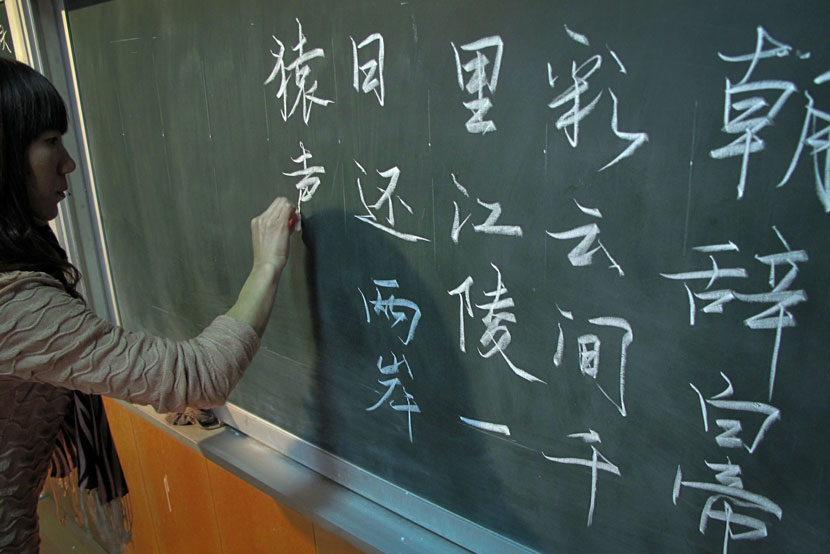 朝辞白帝
彩云间千
里江陵一
日还两岸
猿声